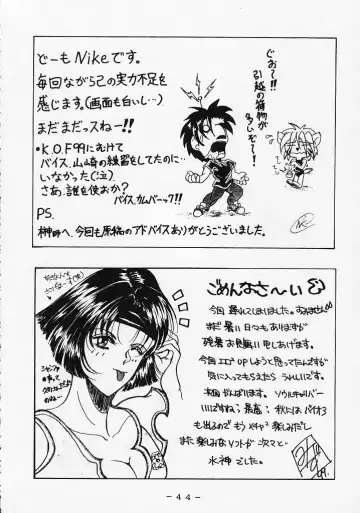 どーもNikeです。
毎回ながら己の実力不足を
感じます。(画面も白いし…)
まだまだっスねー!!
・K.O.F99にむけて
バイス、山崎の練習をしてたのに…
いなかった(泣)
さあ、誰を使おか?
バイス、カムバーック!!
PS.
榊師へ、今回も原稿のアドバイスありがとうございました。
ぐお〜!!
引越の荷物が
多いぞ〜!
ごめんなさ〜い
今回 遅れてしまいました。すみません
まだ 暑い日々もありますが
残暑 お見舞い申しあげます。
今回 エロ UPしようと思ってたんですが
気に入ってもらえたら うれしいです。
次回 がんばります。ソウルキャリバー
いいですね〜最高!秋にはバイオ3
も出るので もう メチャ2楽しみだし
また 楽しみなソフトが 次々と…
水神でした。
99.
- 44 -